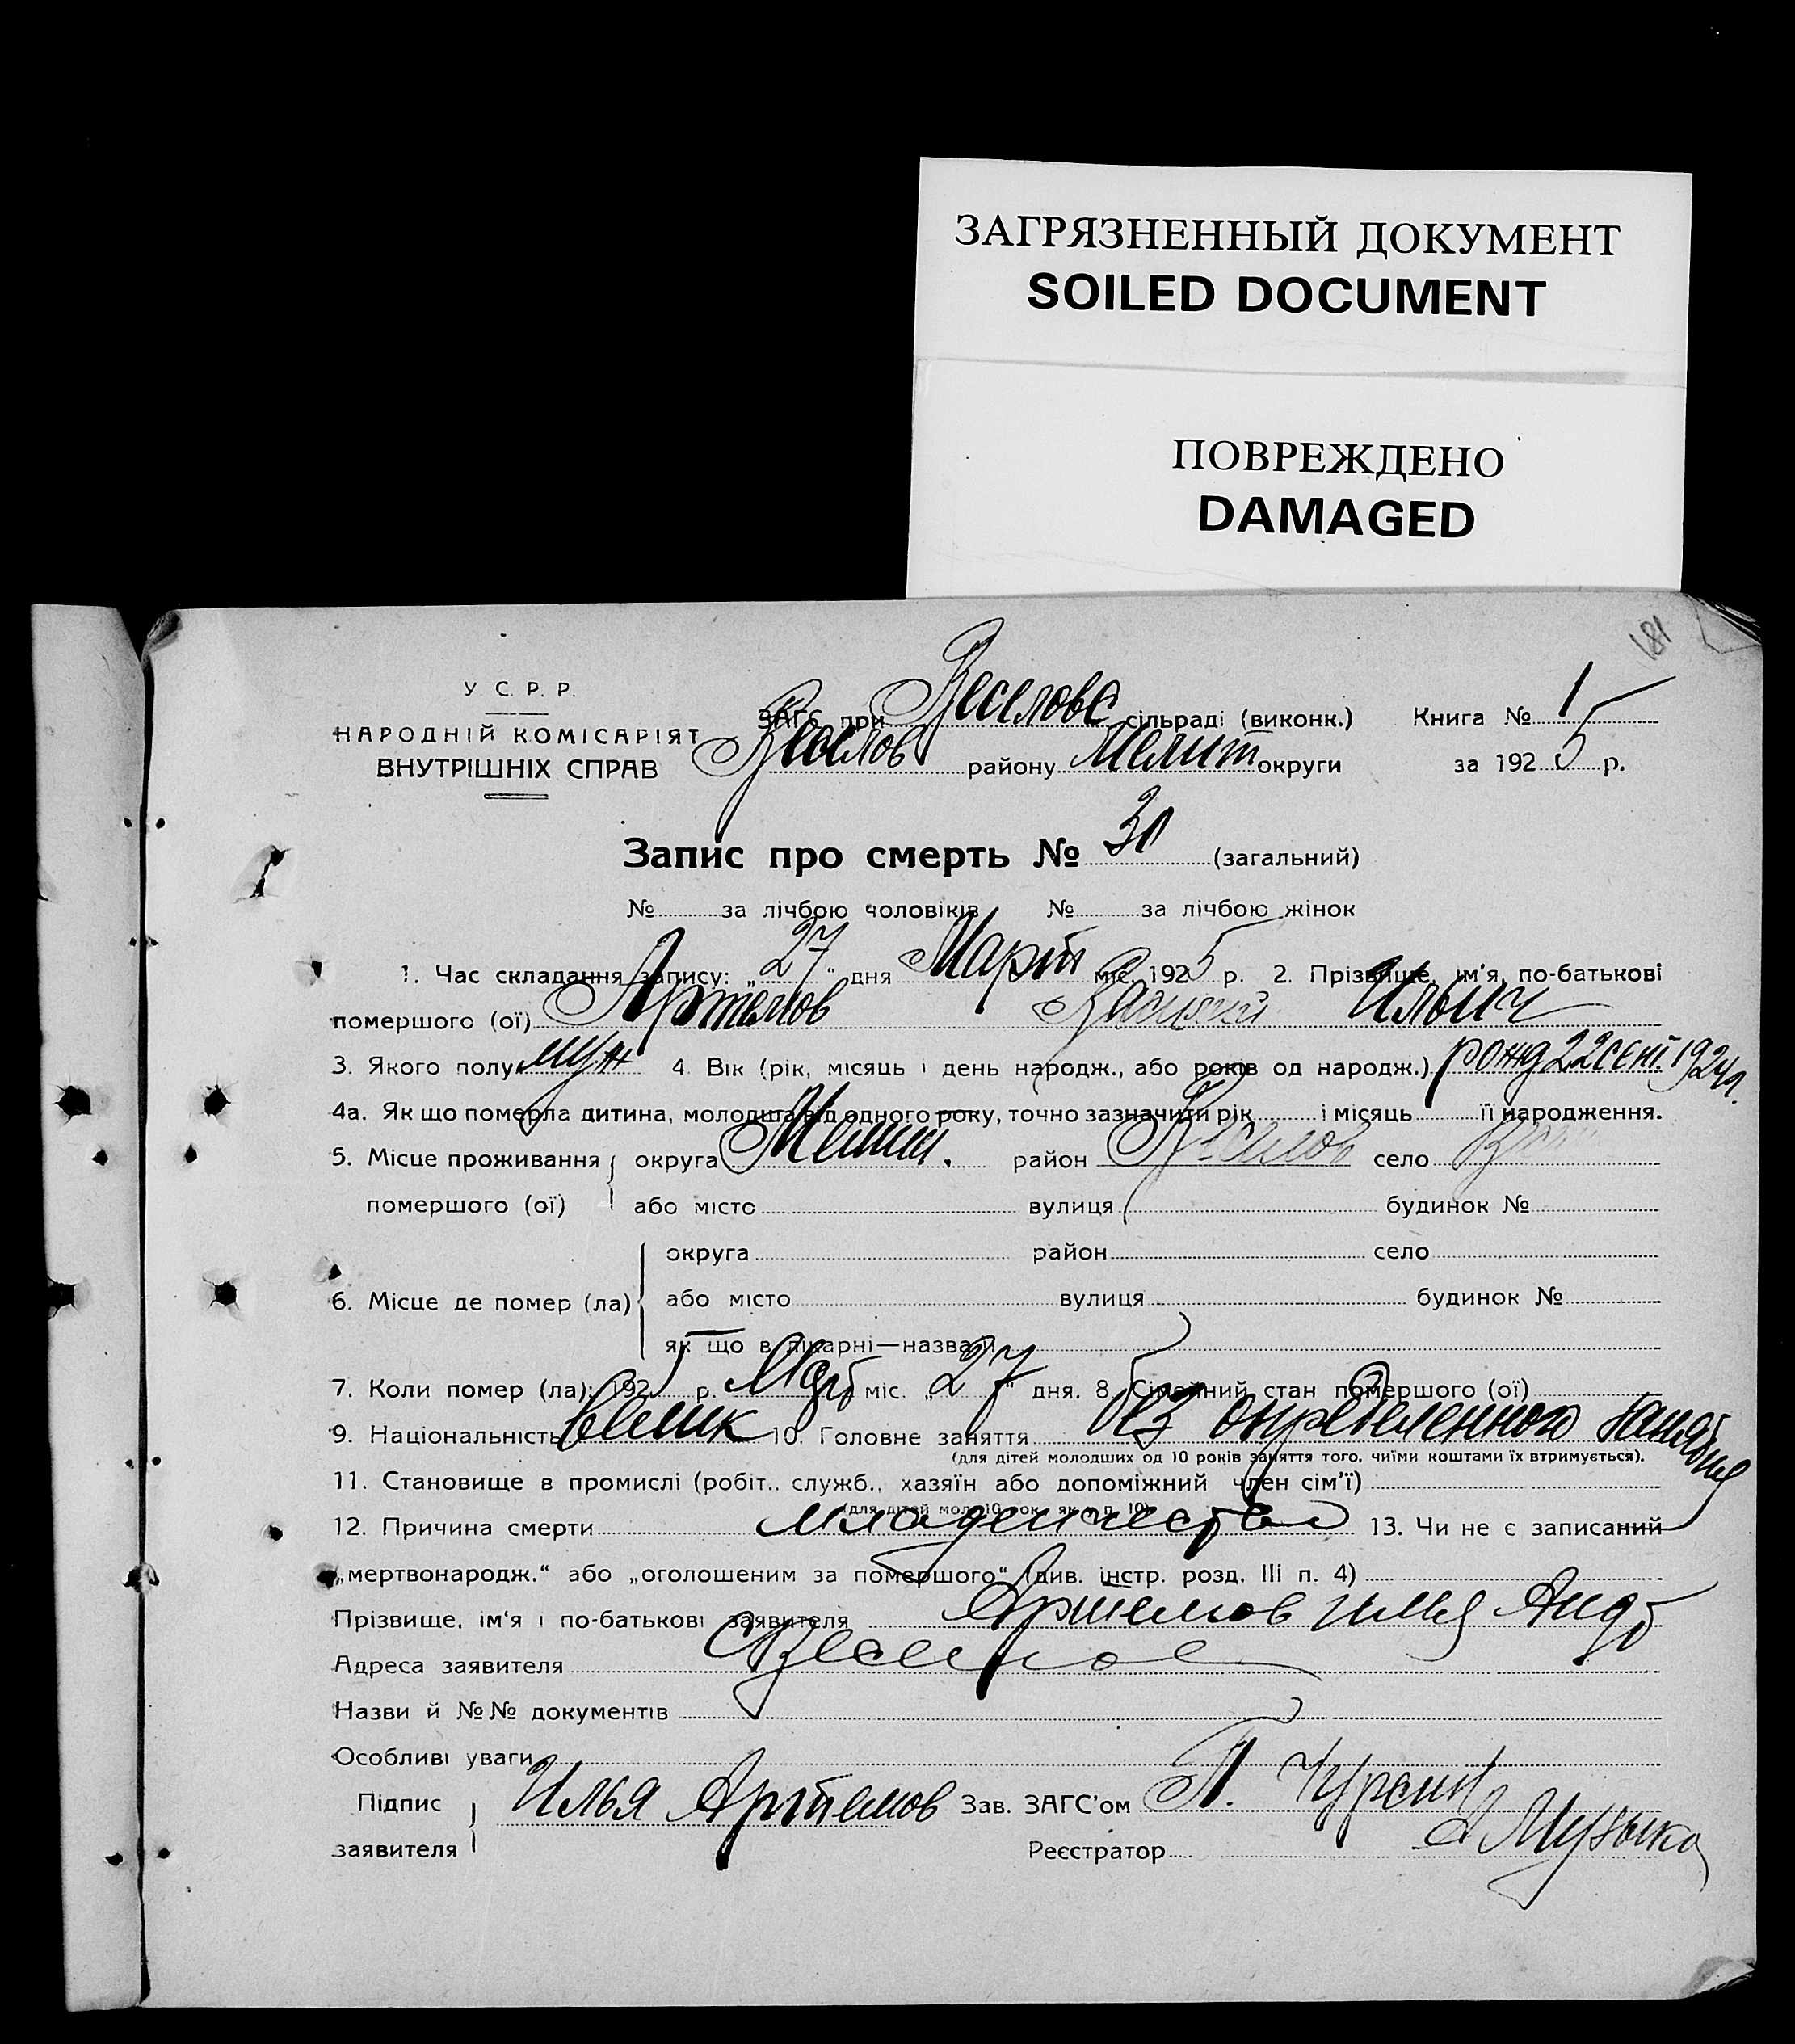 ЗАГРЯЗНЕННЫЙ ДОКУМЕНТ
SOILED DOCUMENT
ПОВРЕЖДЕНО
DAMAGED
181
У С. Р. Р.
НАРОДНІЙ КОМІСАРІЯТ
ВНУТРІШНІХ СПРАВ
ЗАГС при Веселовс сільраді (виконк.) Книга № 1
Веселов району Мелит округи за 1925 р.
Запис про смерть № 30 (загальний)
№ за лічбою чоловіків № за лічбою жінок
1. Час складання запису: „27“ дня Март міс. 1925 р. 2. Прізвище, ім'я, по-батькові
помершого (ої) Артемов Ильич
3. Якого полу муж 4. Вік (рік, місяць і день народж., або років од народж.) рожд 22 сент. 1924 г.
4а. Як що померла дитина, молодша від одного року, точно зазначити рік і місяць її народження.
5. Місце проживання округа Мелит. район Веселов село
помершого (ої) або місто вулиця будинок №
округа район село
6. Місце де помер (ла) або місто вулиця будинок №
як що в лікарні—назвати
7. Коли помер (ла): 1925 р. Март міс. „27“ дня. 8. Сімейний стан помершого (ої)
9. Національність велик 10. Головне заняття без определенного занятия
(для дітей молодших од 10 років заняття того, чиїми коштами їх втримується).
11. Становище в промислі (робіт.. служб., хазяїн або допоміжний член сім'ї)
(для дітей мол. 10 рок. як у п. 10)
12. Причина смерти младенчество 13. Чи не є записаний
„мертвонародж.“ або „оголошеним за помершого“ (див. інстр. розд. III п. 4)
Прізвище, ім'я і по-батькові заявителя Артемов Илья Андр
Адреса заявителя Веселое
Назви й №№ документів
Особливі уваги
Підпис Илья Артемов Зав. ЗАГС'ом П. Чурсин
заявителя Реєстратор Музыка